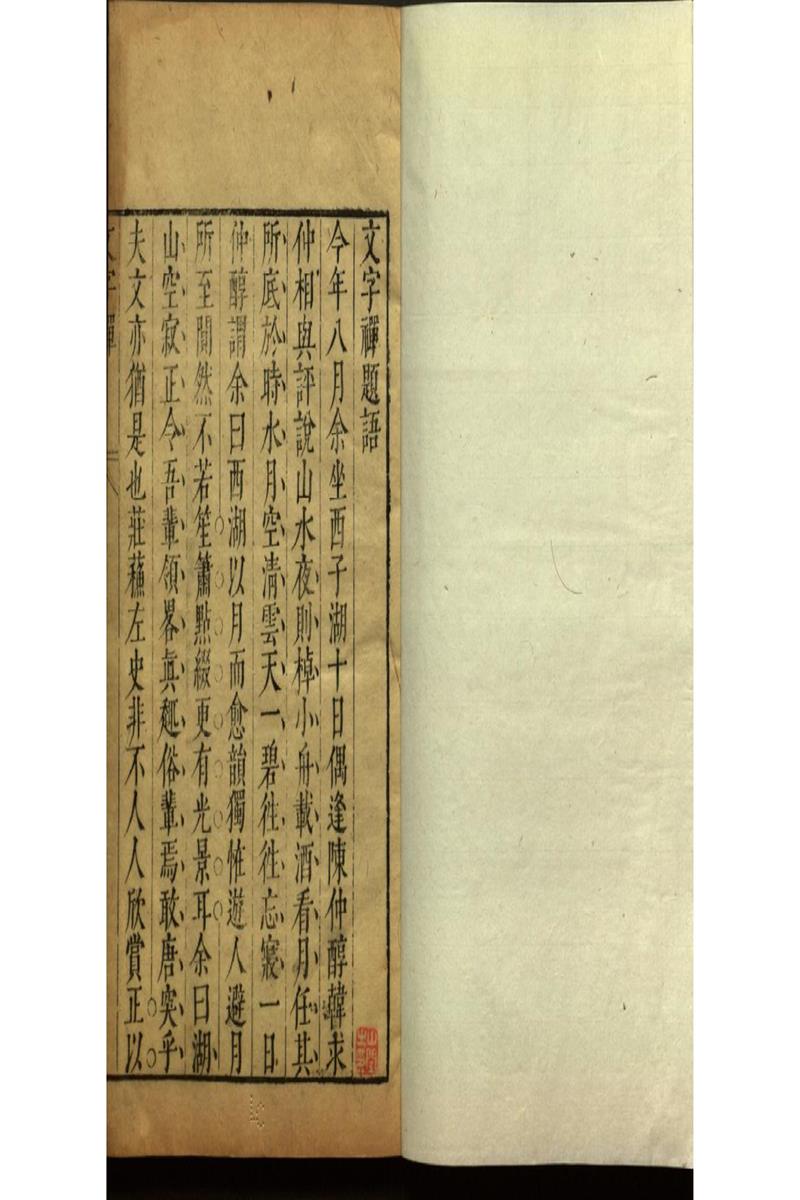 文字禪題語
今年八月余坐西子湖十日偶逢陳仲醇韓求
仲相與評說山水夜則棹小舟載酒看月任其
所底於時水月空淸雲天一碧徃徃忘寢一日
仲醇謂余曰西湖以月而愈韻獨恠遊人避月
所至闃然不若笙簫點綴更有光景耳余曰湖
山空寂正令吾輩領畧眞趣俗輩焉敢唐突乎
夫文亦猶是也莊蘇左史非不人人欣賞正以
文字禪